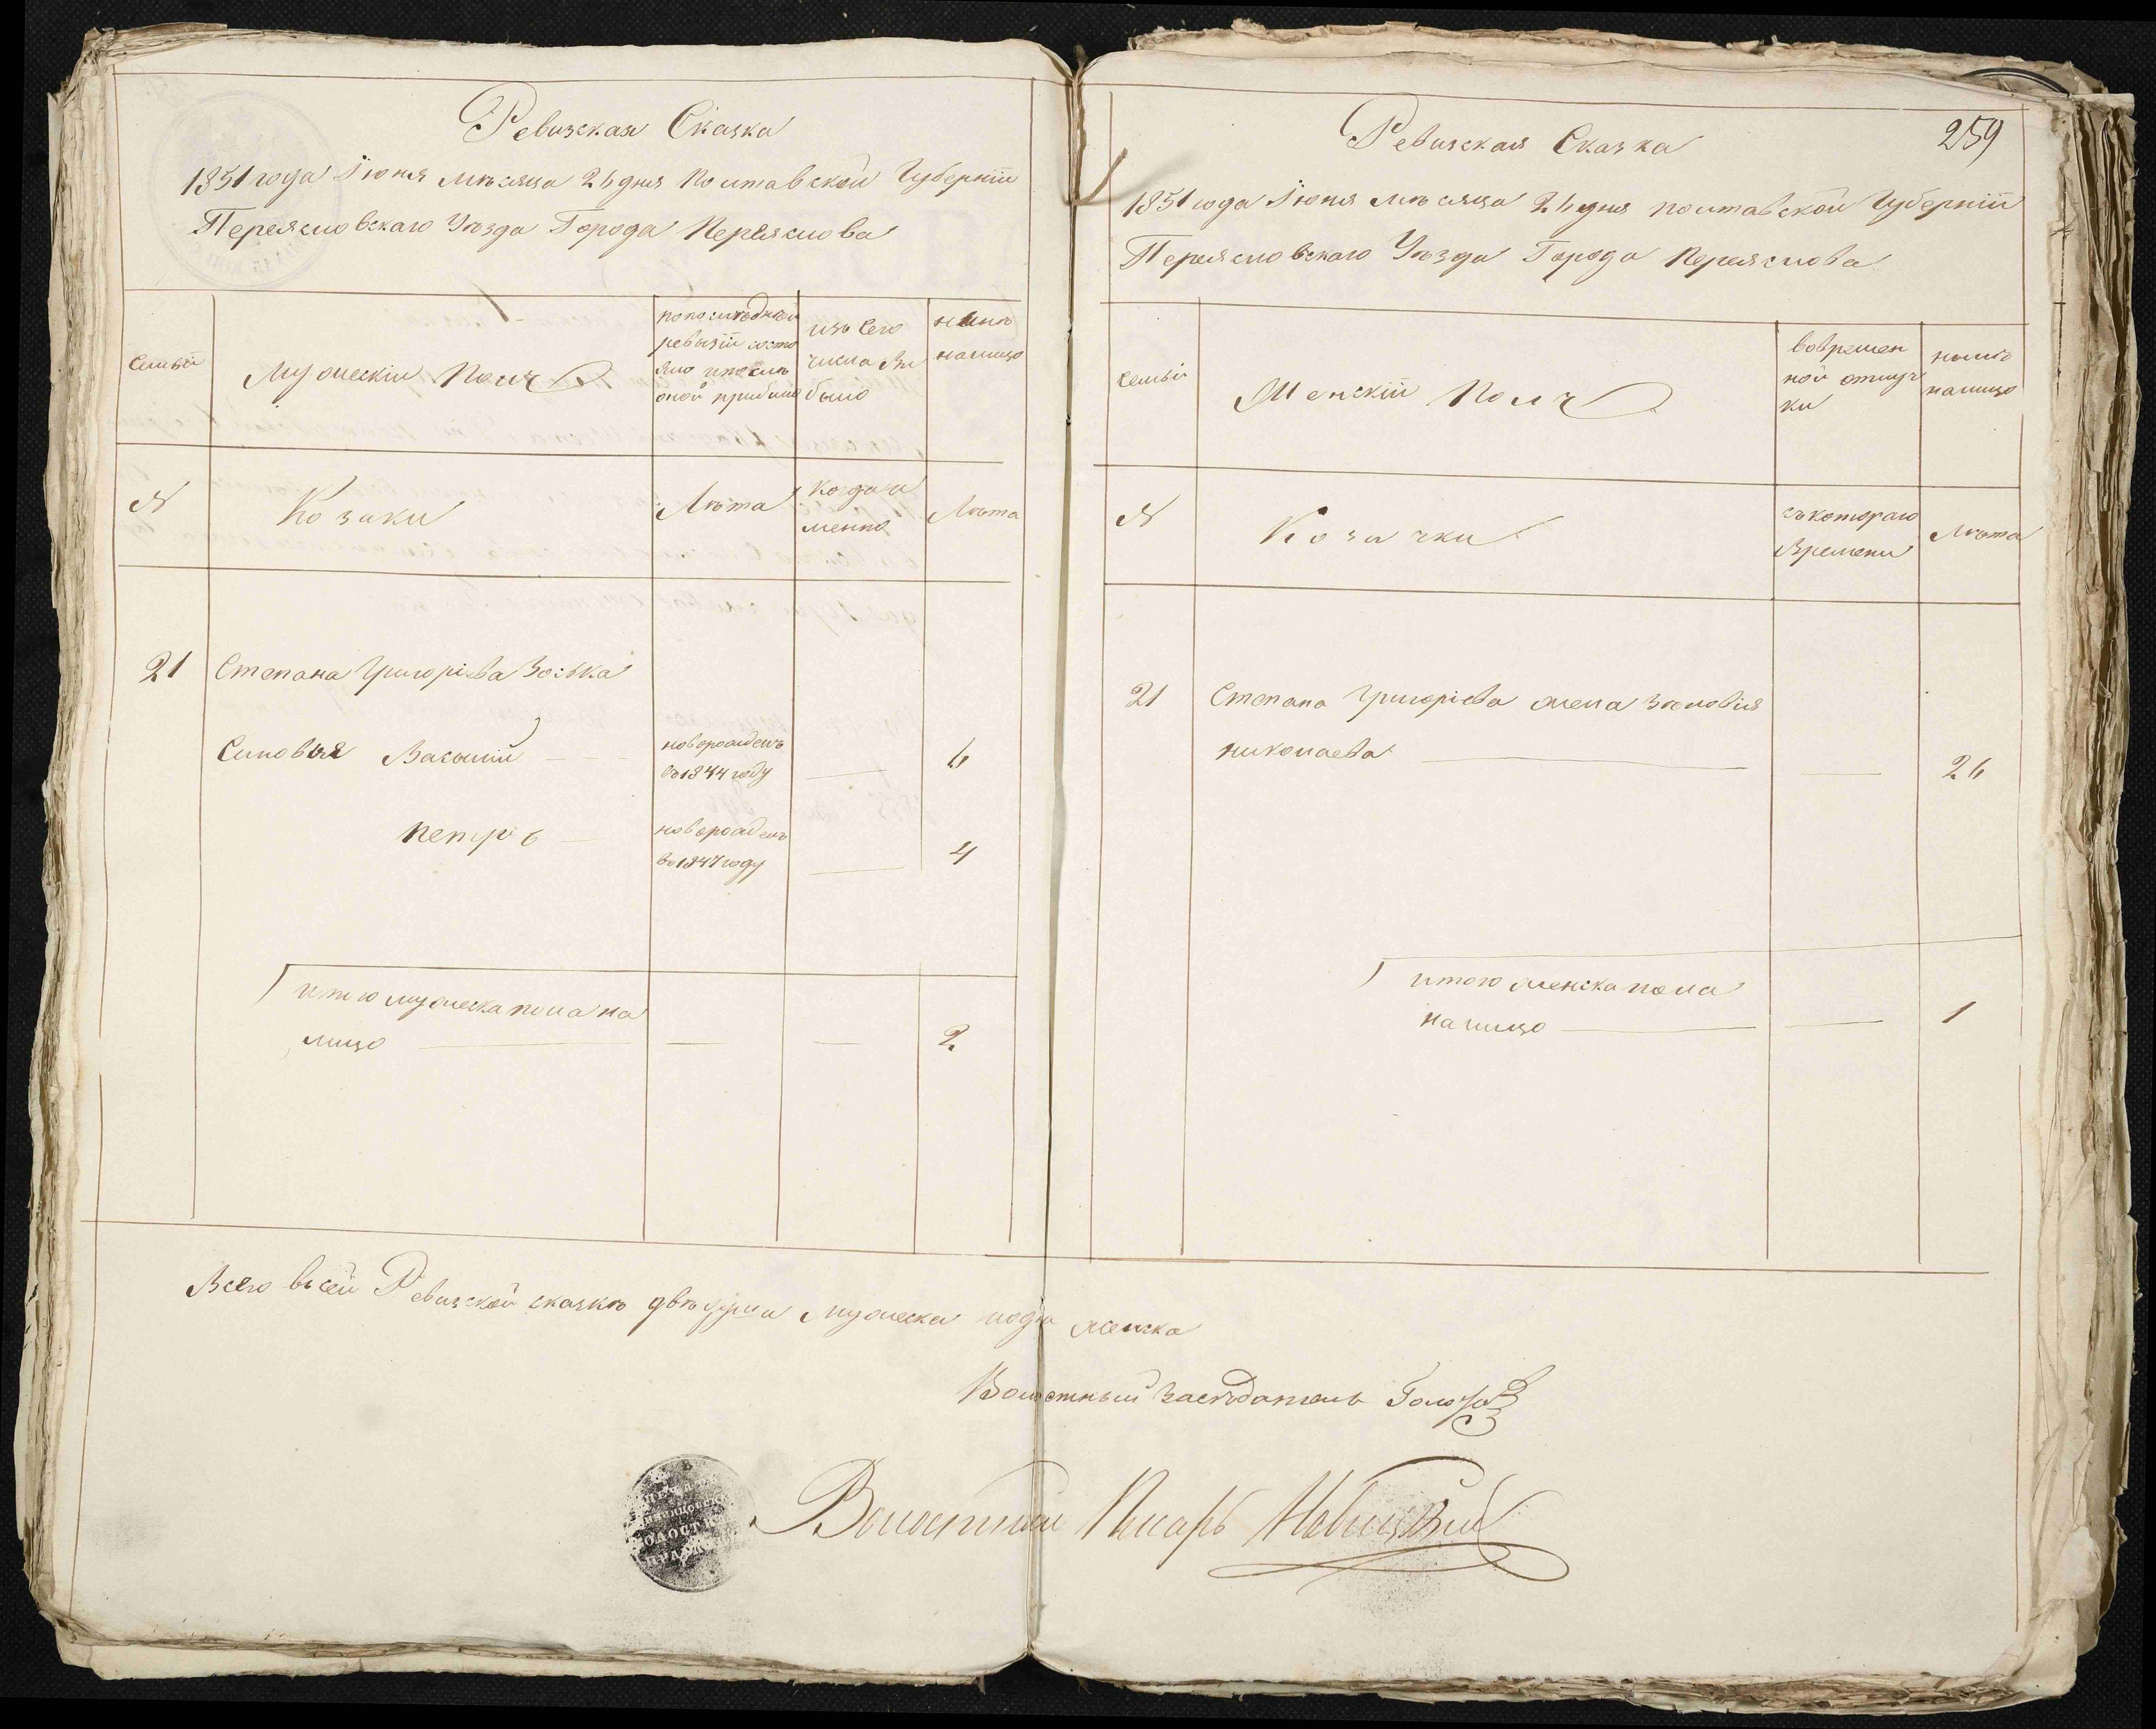 Ревизская Сказка
1851 года Іюня мѣсяца 26 дня Полтавской Губерніи
Переясловскаго Уѣзда Города Переяслова
Семьи
Мужескій Полъ
По последней
ревизіи состо
яло и после
оной прибыло
изъ сего
числа вы
было
ныне
налицо
№
Козаки
Лѣта
Когда и
менно
Лѣта
21
Степана Григоріева
Синовья Василий
новорожденъ
въ 1844 году
6
Петръ
новорожденъ
во 1847 году
4
итого мужеска пола на
лицо
2
259
Ревизская Сказка
1851 года Іюня мѣсяца 26 дня полтавской Губерніи
Переясловскаго Уѣзда Города Переяслова
Семьи
Женскій Полъ
вовремен
ной отлуч
ки
ныне
налицо
№
Козачки
съ котораго
Времени
Лѣта
21
Степана Григоріева жена Зѣновія
николаева
26
итого женска пола
налицо
1
Всего въ сей Ревизской сказкѣ двѣ души мужеска женска
Волостный Засѣдатель
Волостный Писарь Новицкій